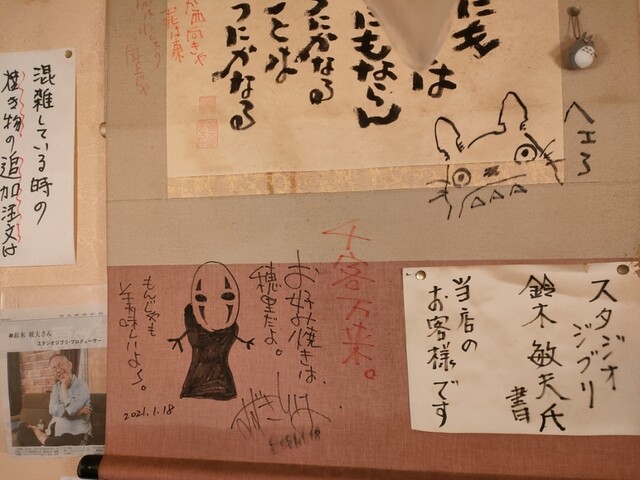 にも
は
にもならん
つにかなる
ことは
つにかなる
西向きや
尾は東
ヘェろ
混雑している時の
焼き物の追加注文は
千客万来。
お好み焼きは、
穂里だよ。
もんじゃも
美味しいよ〜。
2021.1.18
スタジオ
ジブリ
鈴木敏夫氏
書
当店の
お客様です
鈴木敏夫さん
スタジオジブリ・プロデューサー